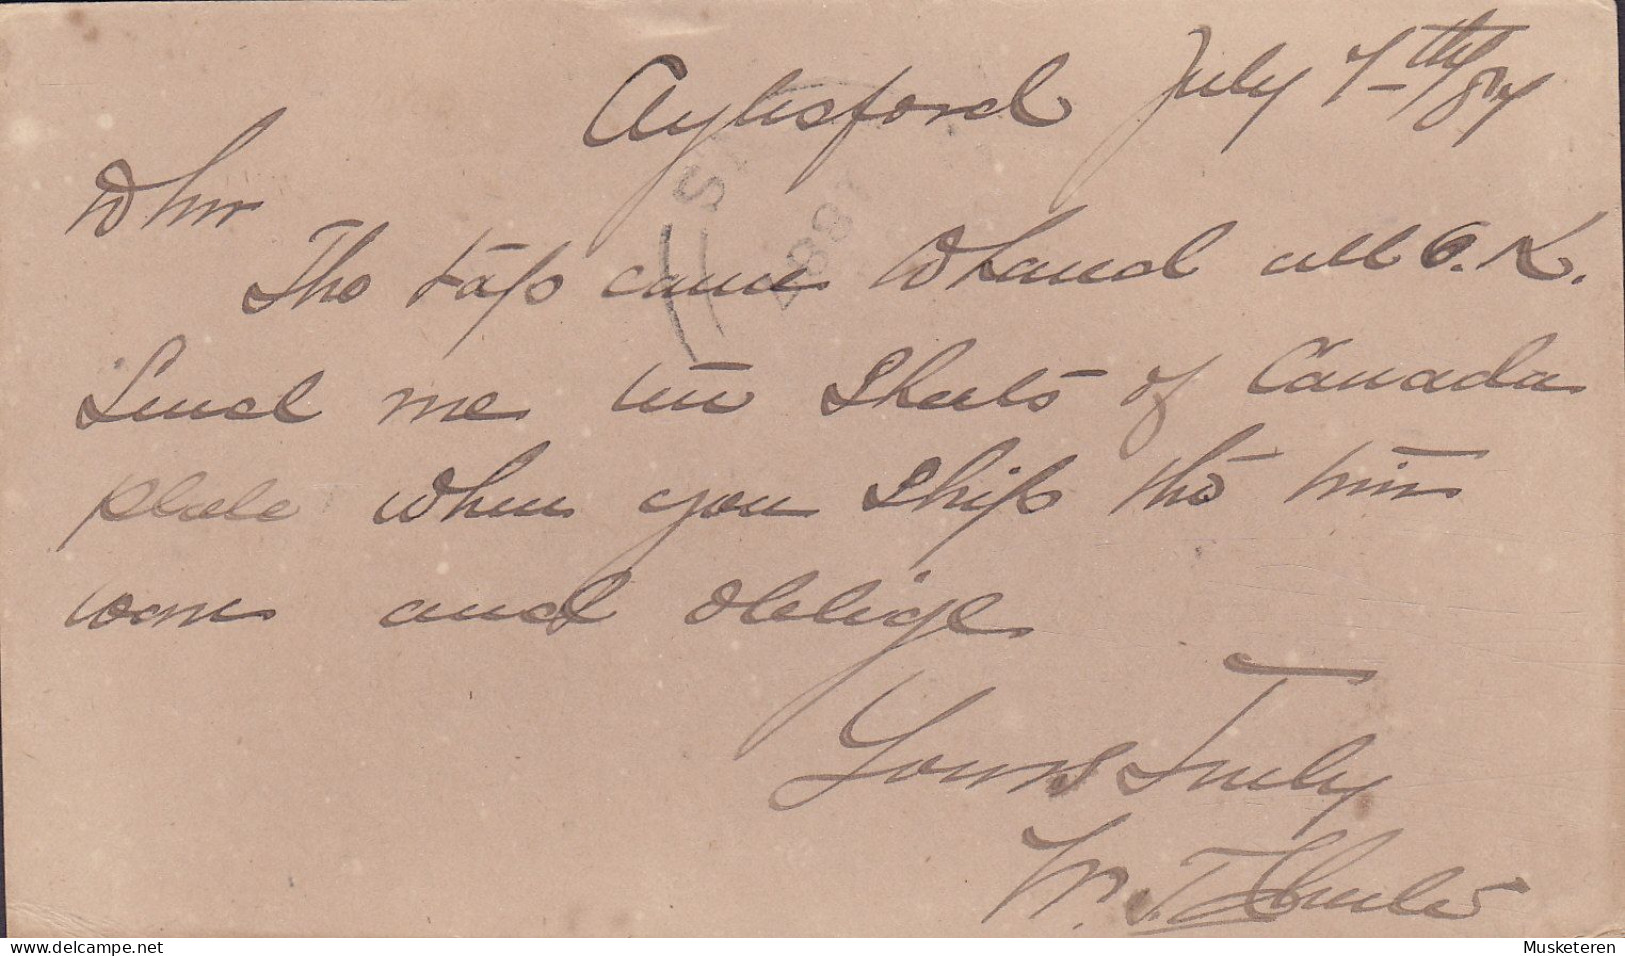 Aylesford July 7th/87
The taps came to hand all O.K.
Send me ten Sheets of Canada
plate when you Ship the tin
ware and oblige
Yours Truly
W. J.
1887
Musketeren